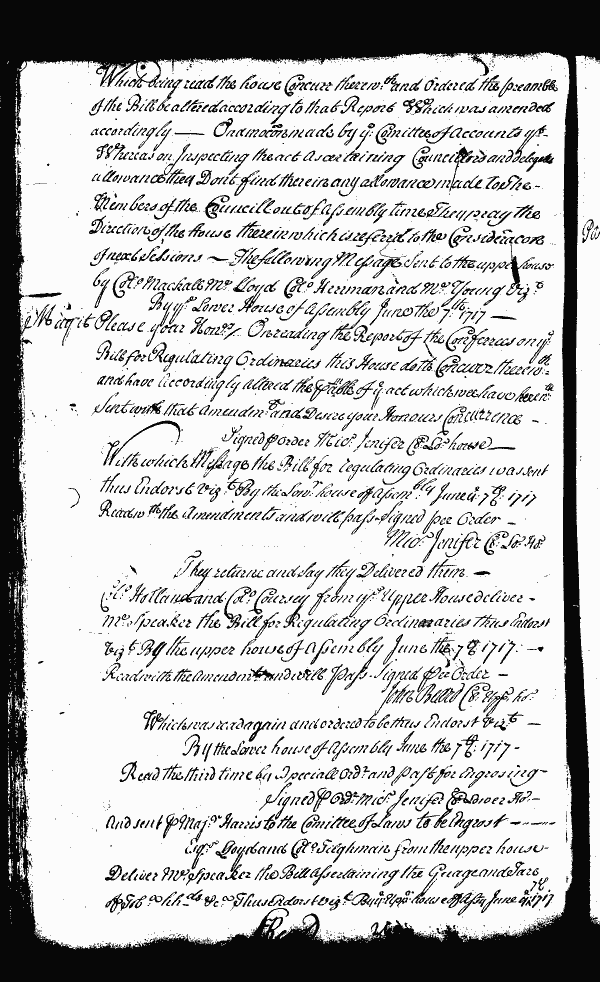 Which being read the house Concurr therew.th and Ordered the preamble
of the Bill be altered according to that Report Which was amended
accordingly — On a mocon made by ye Comittee of Accounts yt
Whereas on Inspecting the act Ascertaining Councillors and delegates
allowance they Dont find therein any allowance made To The
Members of the Councill out of Assembly time They pray the
Direction of the House therein which is referrd to the Consideracon
of next Sessions — The following Message Sent to the upper house
by Colo Mackall Mr Lloyd Colo Herriman and Mr Young vizt
By ye Lower House of Assembly June the 7th 1717 —
May it Please your Honrs/ On reading the Report of the Conferrees on ye
Bill for Regulating Ordinaries this House doth Concurr therewth
and have Accordingly altered the pable of ye act which we have herewth
Sent with that Amendmt and Desire your Honours Concurrence —
Signed p order Micl Jenifer Cl Lo: house —
With which Message the Bill for regulating Ordinaries was sent
thus Endorst vizt By the Lowr house of Assembly June ye 7th 1717
Read wth the Amendments and will pass Signed per Order —
Micl Jenifer Cl Lo: Ho:
They returne and say they Delivered them —
Colo Holland and Colo Coursey from ye Upper House deliver —
Mr Speaker the Bill for Regulating Ordinaries thus Endorst
vizt By the upper house of Assembly June the 7th 1717 —
Read with the Amendent and will Pass Signed p Order —
John Beard Cl Upp: ho:
Which was read again and ordered to be thus Endorst vizt —
By the Lower house of Assembly June the 7th 1717 —
Read the third time by Speciall Ordr and past for Ingrosing —
Signed p Ordr Micl Jenifer Cl Lower Ho: —
And sent p Majr Harris to the Comittee of Laws to be Ingrost —
Esqr Loyd and Colo Tilghman from the upper house
Deliver Mr Speaker the Bill Assertaining the Guage and Tare
of Tobo hhds &ca Thus Endorst vizt By ye Uppr house of Assbly June ye 7th 1717
Read